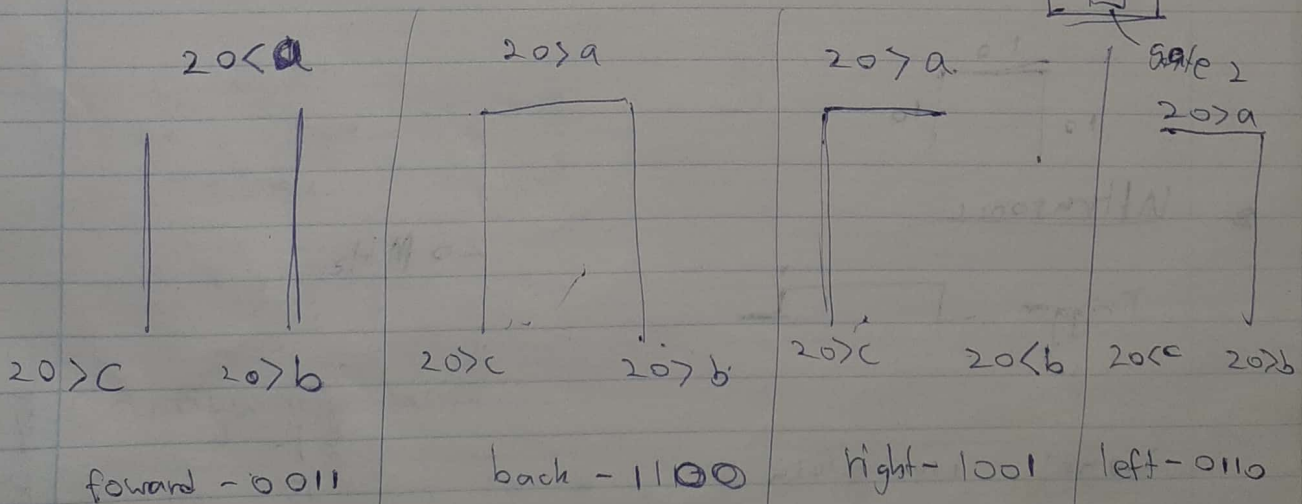 20<a
20>c 20>b
foward - 0011
20>a
20>c 20>b
back - 1100
20>a
20>c 20<b
right - 1001
20>a
20<c 20>b
left - 0110